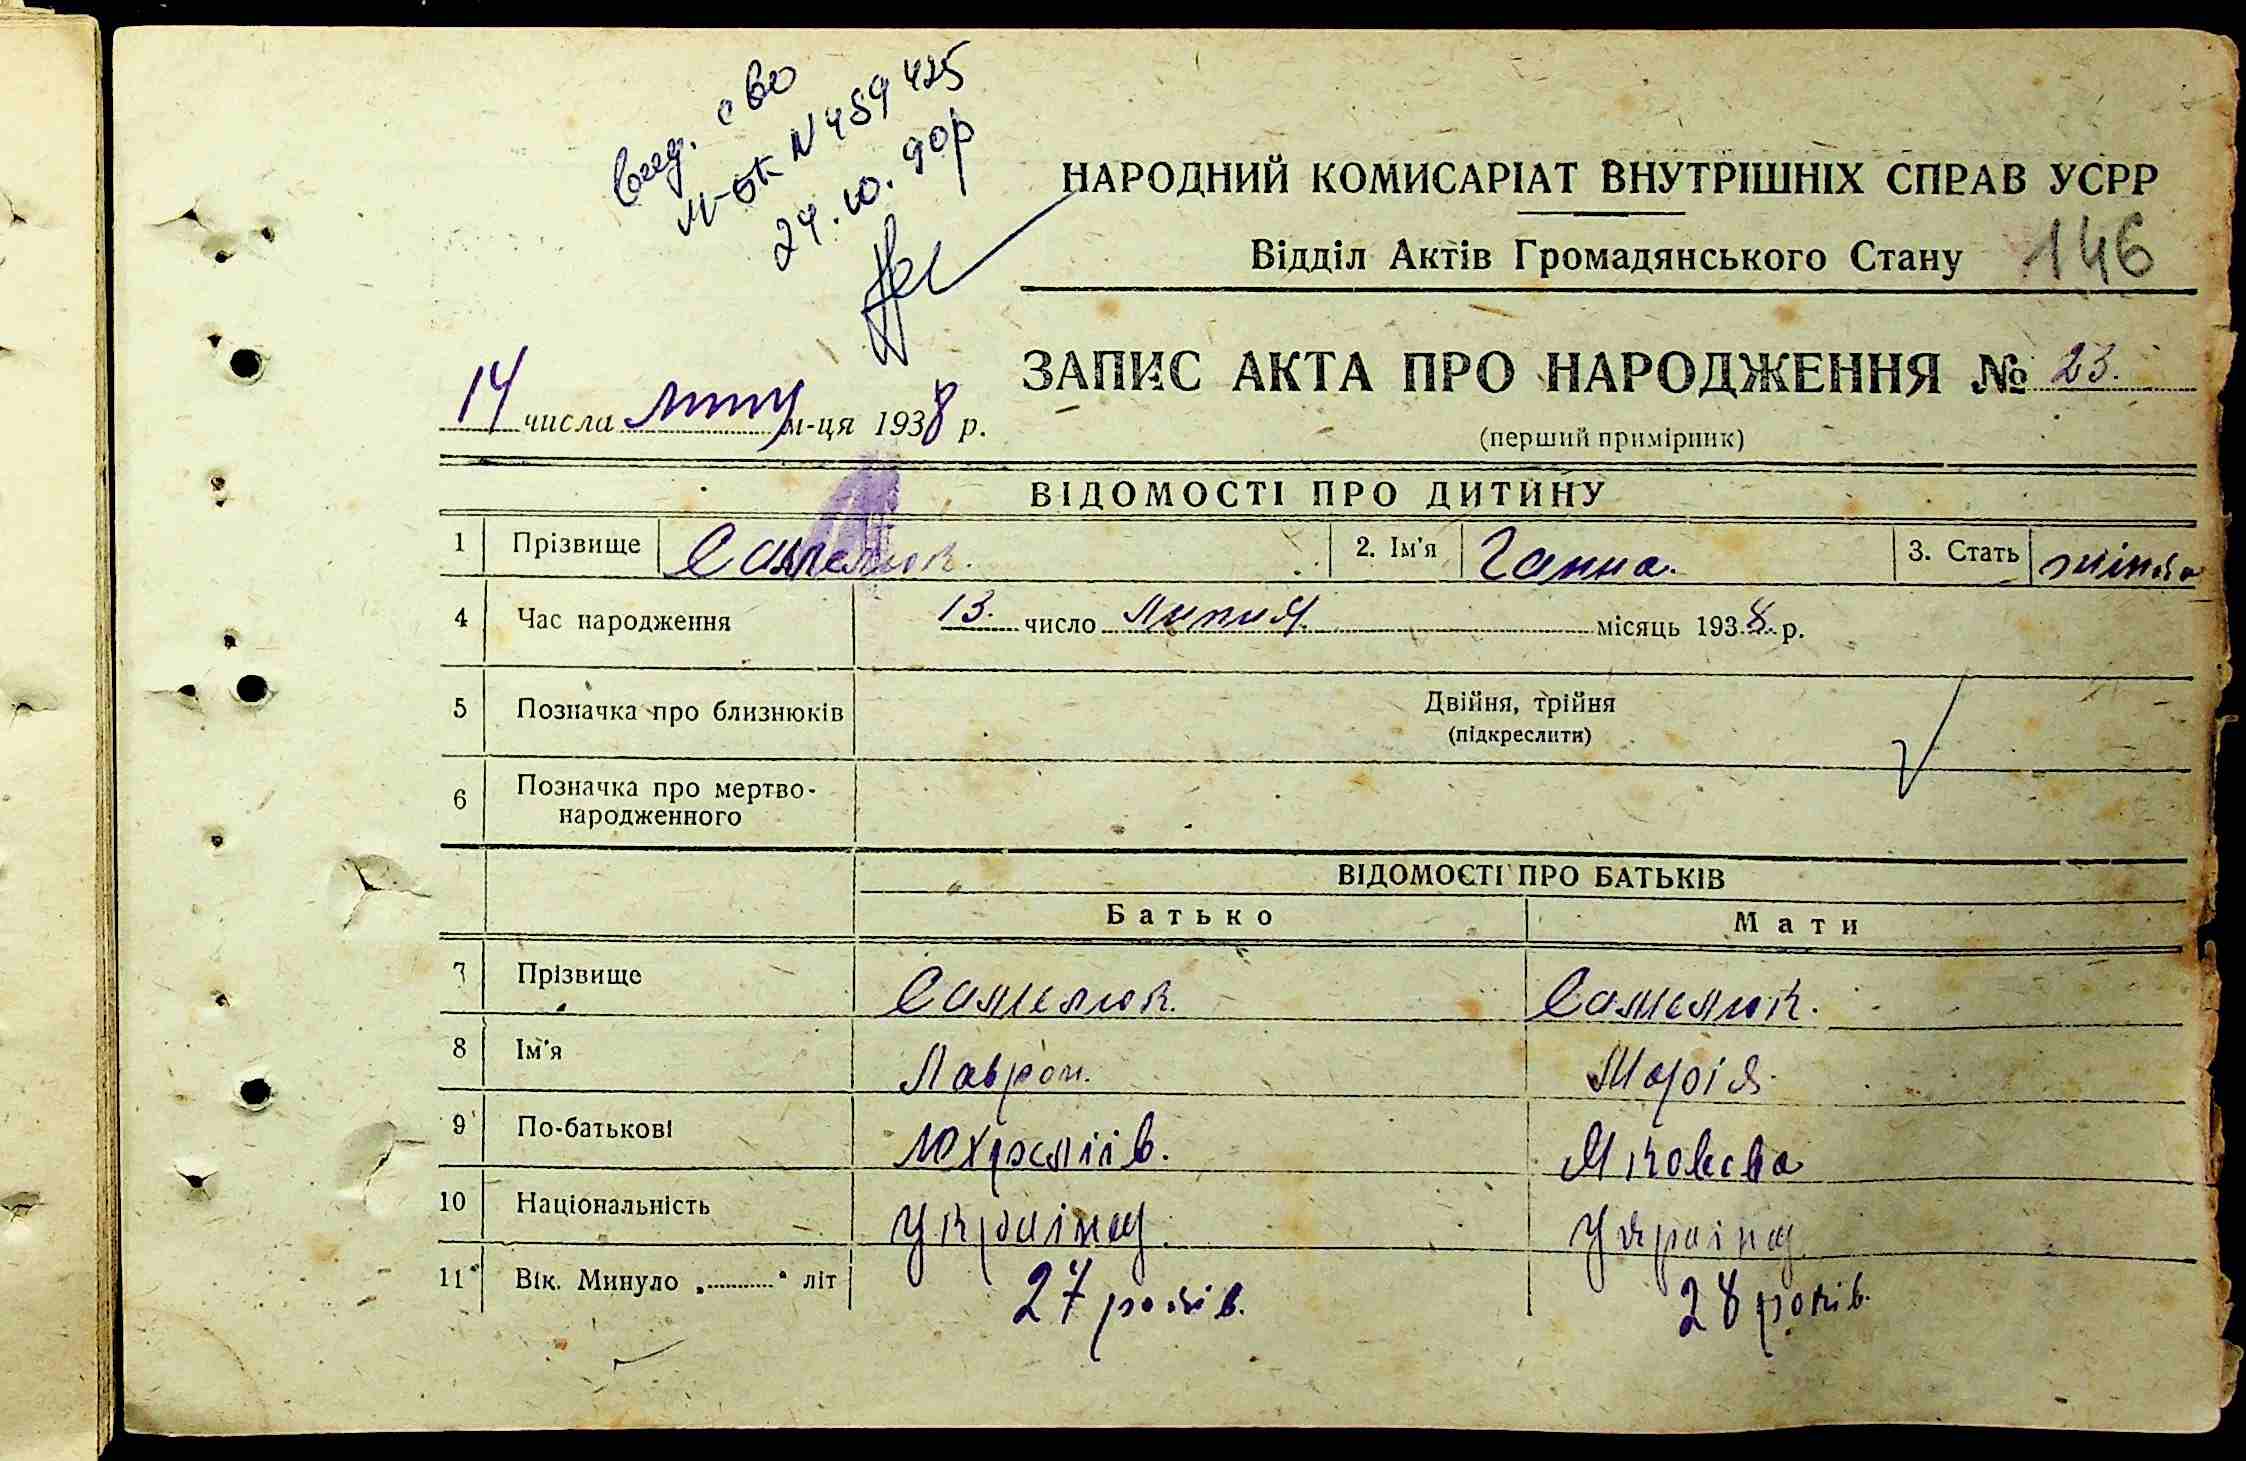 вид. сво
М-БК N 459425
24.10.90р
НАРОДНИЙ КОМИСАРІАТ ВНУТРІШНІХ СПРАВ УСРР
Відділ Актів Громадянського Стану 146
ЗАПИС АКТА ПРО НАРОДЖЕННЯ № 23.
14 числа м-ця 1938 р.
(перший примірник)
ВІДОМОСТІ ПРО ДИТИНУ
1 Прізвище Самелюк. 2. Ім'я Ганна. 3. Стать
4 Час народження 13. число місяць 1938 р.
5 Позначка про близнюків Двійня, трійня
(підкреслити)
6 Позначка про мертво-
народженного
ВІДОМОСТІ ПРО БАТЬКІВ
Батько Мати
7 Прізвище Самелюк. Самелюк.
8 Ім'я Лаврон. Марія.
9 По-батькові Яковева
10 Національність
11 Вік. Минуло „ “ літ 27 років. 28 років.